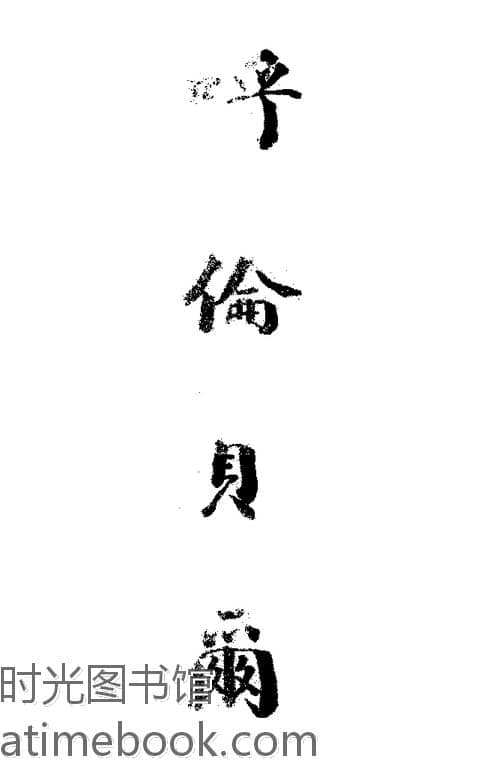 呼
倫
貝
爾
时光图书馆
atimebook.com